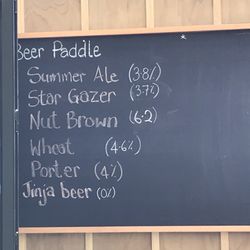 Beer Paddle
Summer Ale (3.8%)
Star Gazer (3.7%)
Nut Brown (6.2)
Wheat (4.6%)
Porter (4%)
Jinja beer (0%)